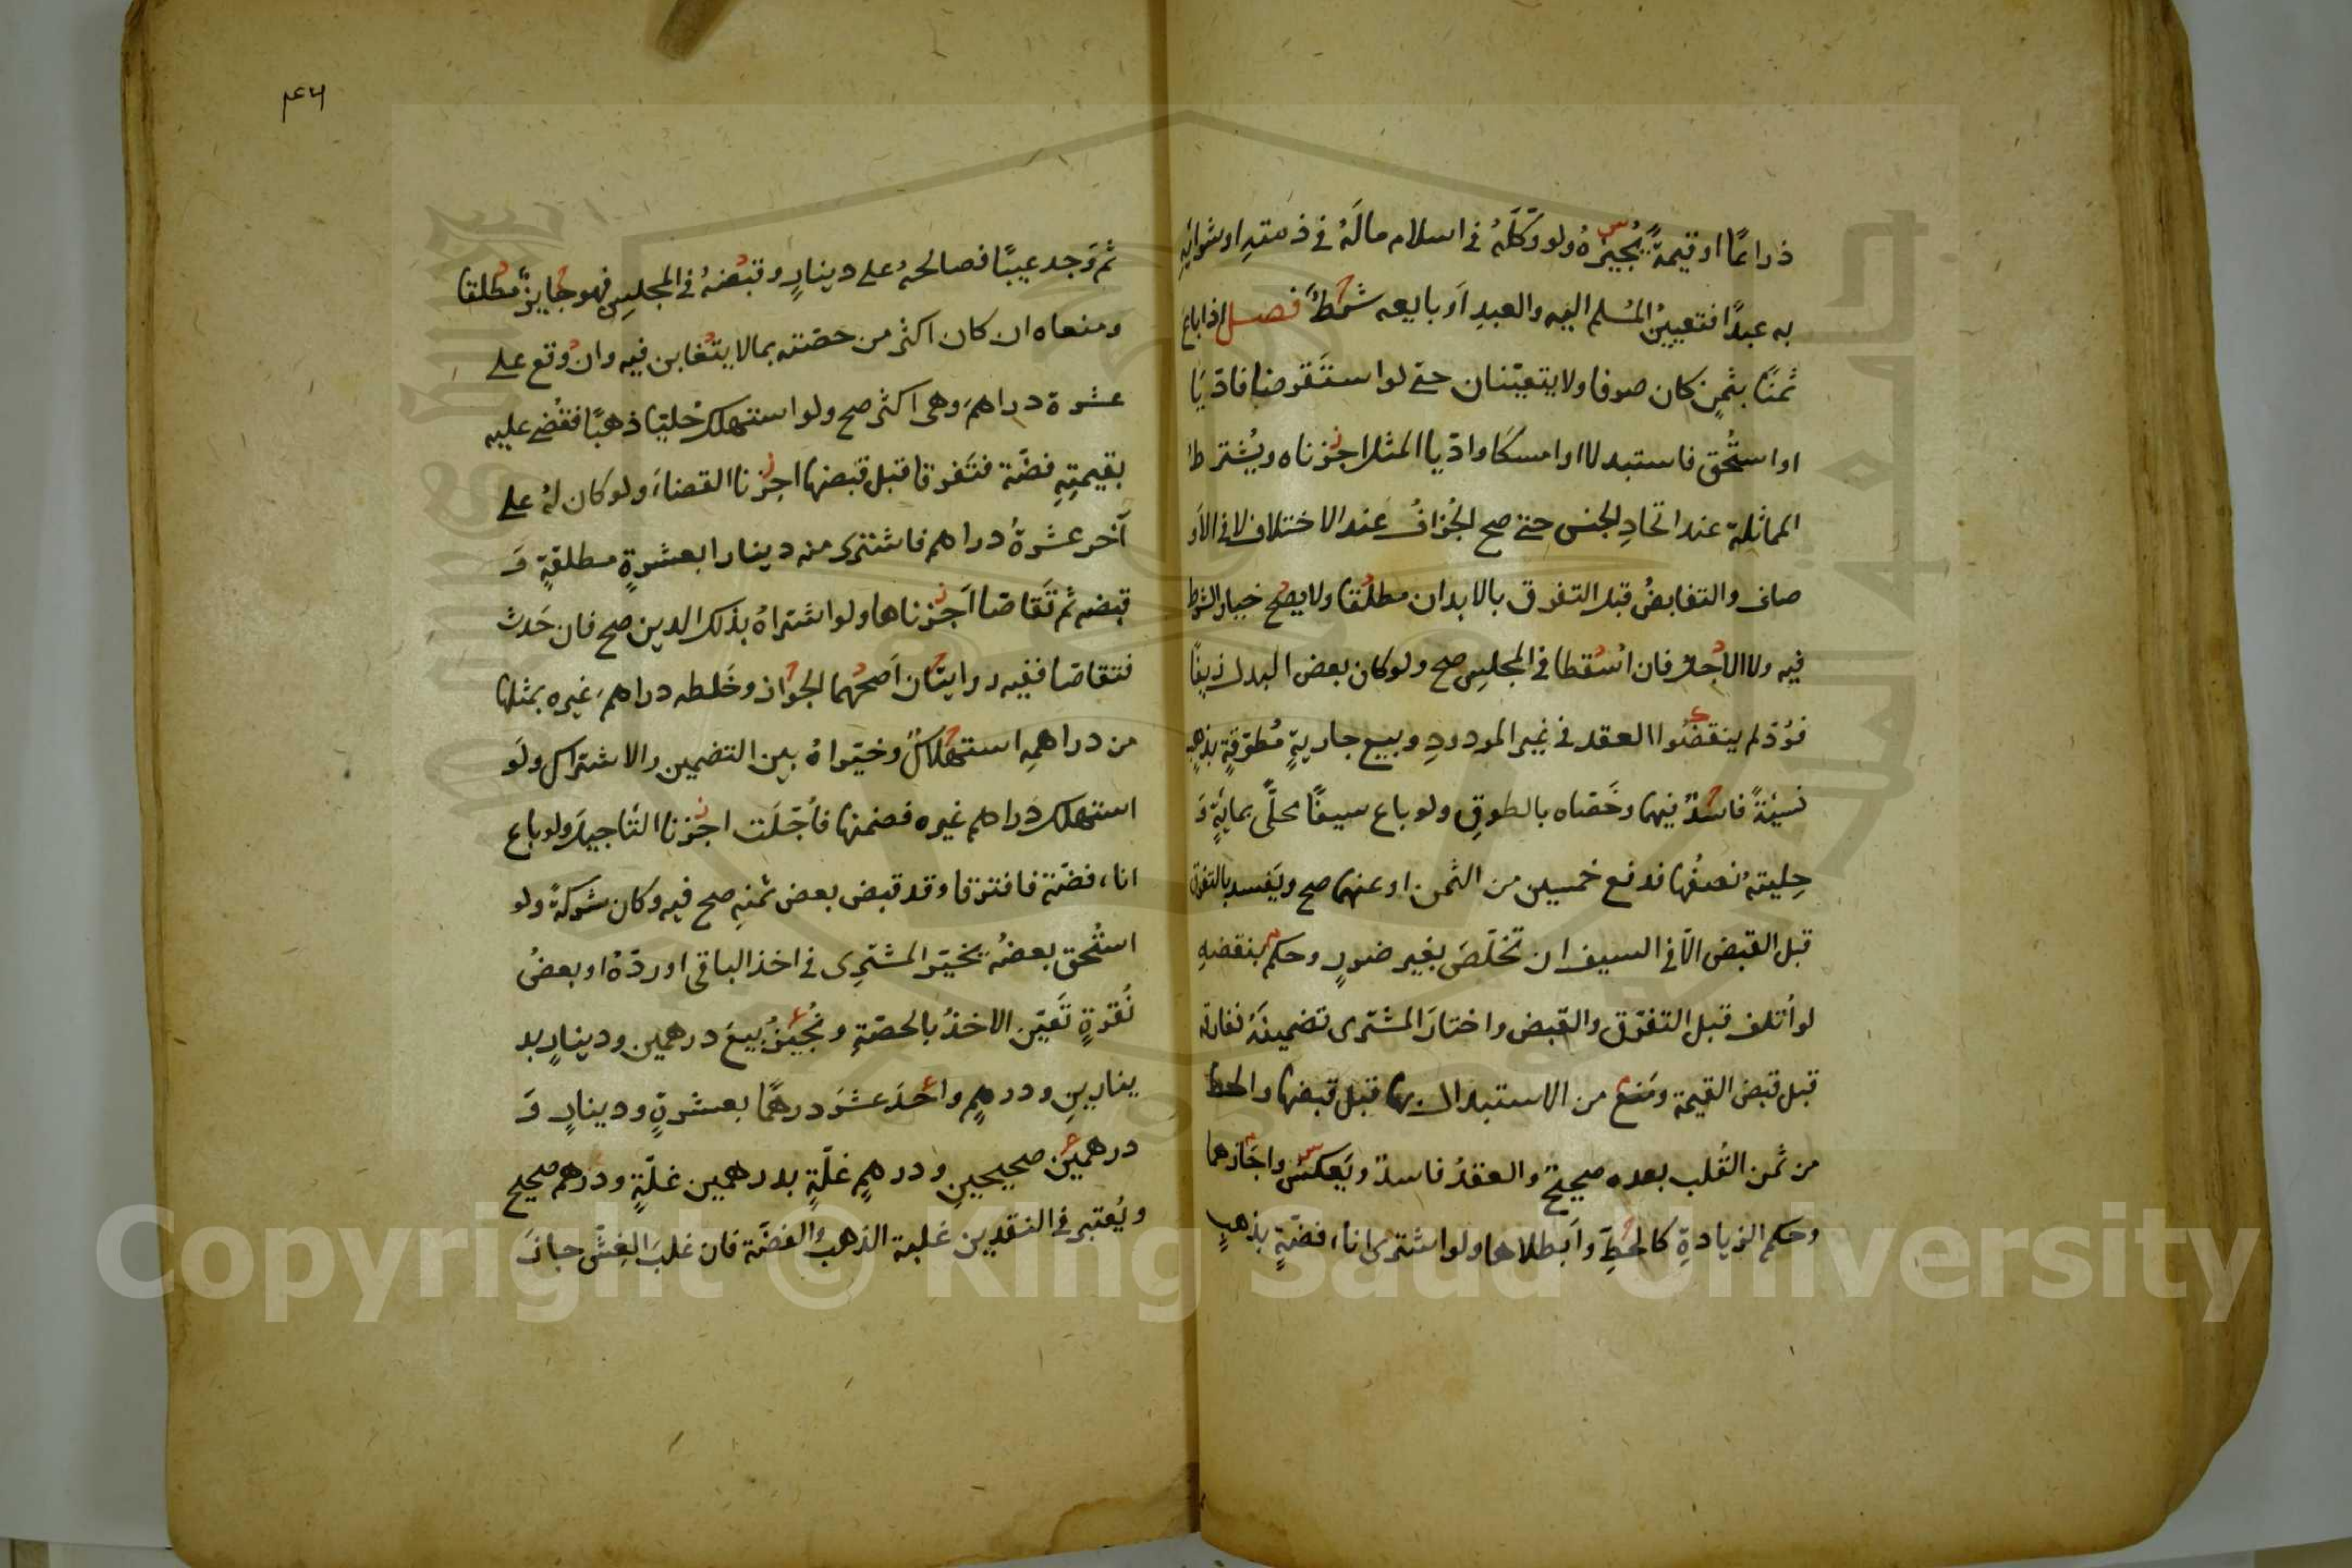 ذراعًا او قيمةً يُجيزهُ ولو وكّلَهُ في اسلام مالَهُ في ذمتهِ او شرائهِ
به عبدًا فتعيينُ المُسلم اليه والعبدِ اَو بايعه شرطٌ فصل اذا باع
ثمنًا بثمنٍ كان صرفا ولا يتعيّنان حتى لو استَقرضا فادّيَا
او استُحق فاستبدلا او امسكَا وادّيا المثل اجزناه ويُشترط
المماثلة عند اتحادِ الجنس حتى صح الجُزافُ عند الاختلاف لا في الاَو
صاف والتقابضُ قبل التفرق بالابدان مطلقا ولا يصح خيار الشرط
فيه ولا الاجل فان اُسْقطا في المجلس صح ولو كان بعض البدل زيفًا
فرُدّ لم ينقضُوا العقد في غير المردودِ وبيع جاريةٍ مُطوّقةٍ بذهبٍ
نسيئةً فاسدٌ فيهما وخَصّاه بالطوقِ ولو باع سيفًا محلًّى بمائةٍ وَ
حِليتهُ نصفُها فدفع خمسين من الثمن او عنهما صح ويَفسد بالتفرق
قبل القبض الّا في السيف ان تخلّصَ بغير ضررٍ وحكم بنقضهِ
لو اُتلف قبل التفرّق والقبض واختارَ المشترى تضمينَهُ ففارقه
قبل قبض القيمة ومَنع من الاستبدال بهما قبل قبضها والحط
من ثمن القُلب بعده صحيحٌ والعقدُ فاسدٌ ويَعكسُ واجَازهما
وحكم الزيادةِ كالحطِّ وأبطلاها ولو اشترى اناء فضّةٍ بذهبٍ
٤٦
ثم وَجد عيبًا فصالحهُ على دينارٍ وقبضهُ في المجلسِ فهو جايزٌ مطلقا
ومنعاه ان كان اكثر من حصّته بما لا يتغابن فيه وان وُقع على
عشرة دراهمَ وهى اكثر صح ولو استهلك حُليّا ذهبًا فقُضى عليه
بقيمتِهِ فضّة فتَفرقا قبل قبضها اجزنا القضاءَ ولو كان لهُ على
آخر عشرةُ دراهم فاشترى منه دينارا بعشرةٍ مطلقةٍ وَ
قبضه ثم تَقاصّا اَجزناها ولو اشتراهُ بذلك الدين صح فان حَدث
فتقاصّا ففيه روايتان اَصحّهما الجواز وخَلطه دراهمَ غيره بمثلها
من دراهمهِ استهلاكٌ وخيّراهُ بين التضمين والاشتراك ولَو
استهلك دراهم غيره فضمنها فأجّلَت اجزنا التأجيل ولو باع
اناء فضّة فافترقا وقد قبض بعض ثمنهِ صح فيه وكان شركةً ولو
استُحق بعضُه يخيّر المشتَرِى في اخذ الباقى او ردّهُ او بعضُ
نُقرةٍ تَعيّن الاخذُ بالحصّةِ ونُجيزُ بيعَ درهمين ودينارٍ بد
ينارينِ ودرهمٍ واحدَ عشرَ درهمًا بعشرةٍ ودينارٍ وَ
درهمين صحيحينِ ودرهمٍ غلّةٍ بدرهمين غلّةٍ ودرهم صحيح
ويُعتبر في النقدين غلبة الذهب والفضّة فان غلبَ الغِشّ جازَ
Copyright © King Saud University